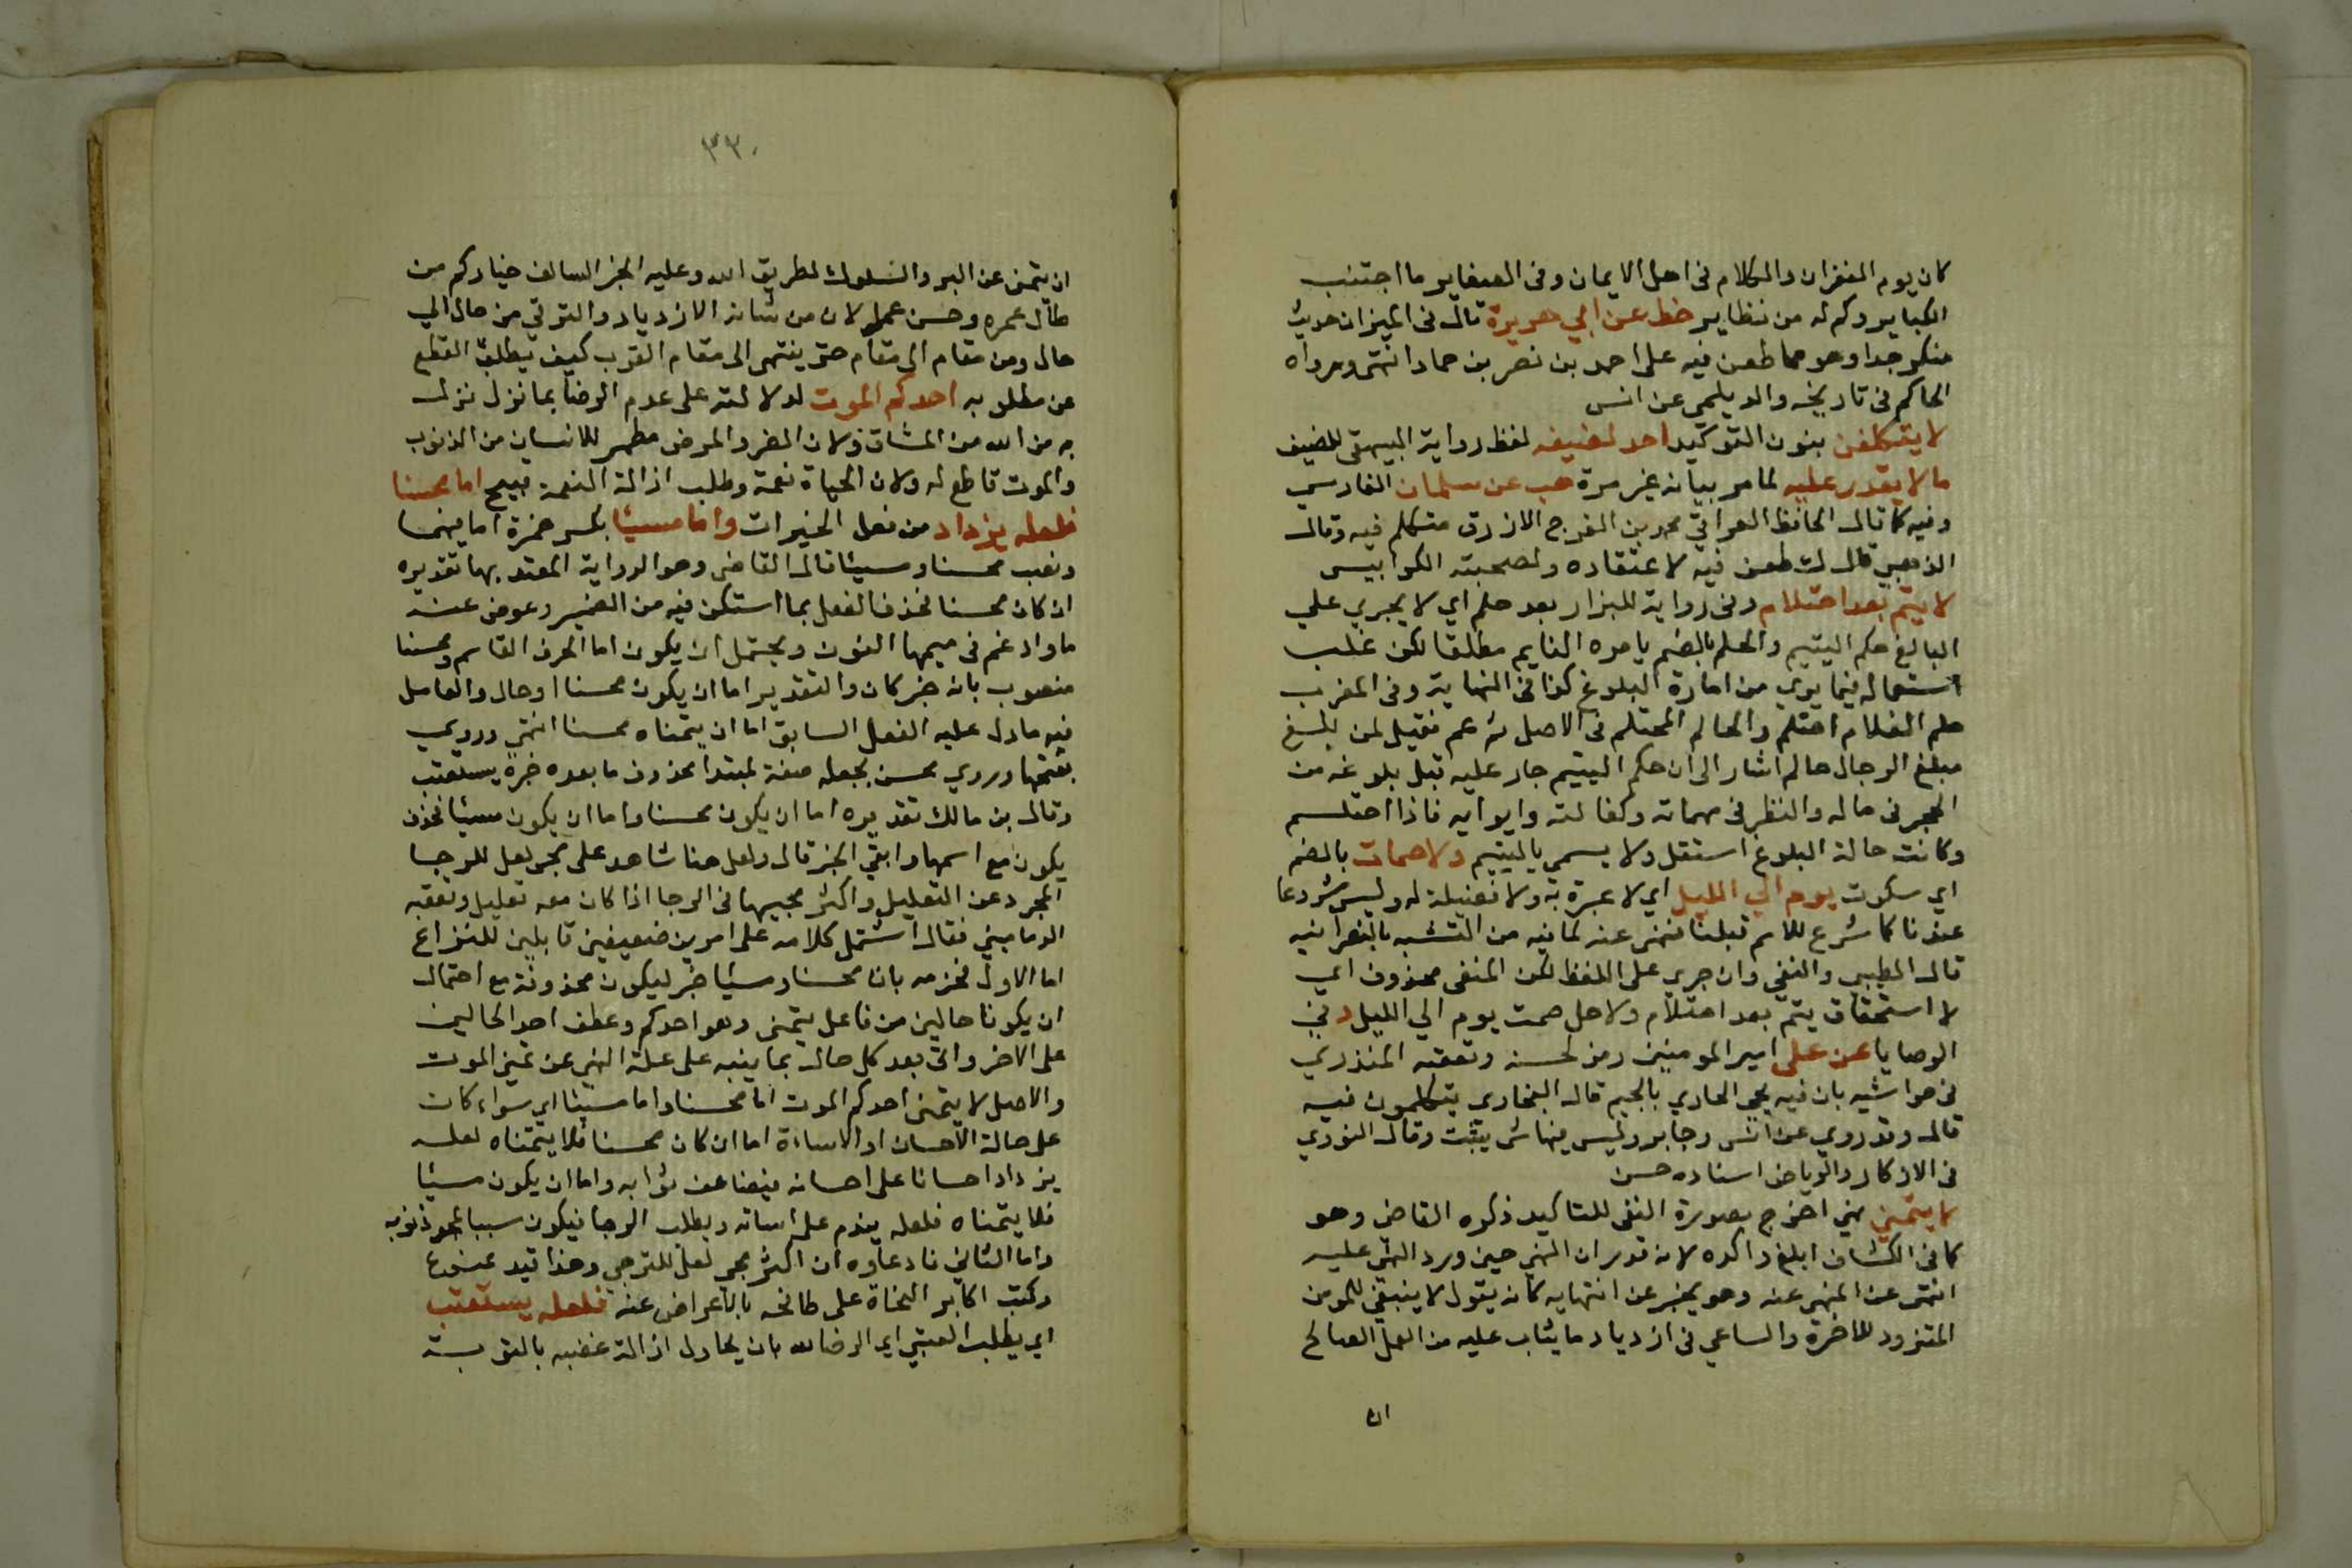 كان يوم الغفران والكلام فى اهل الايمان وفى الصغاير ما اجتنب
الكباير وكم له من نظاير خط عن ابي هريرة قال فى الميزان حديث
منكر جدا وهو مما طعن فيه على احمد بن نصر بن حماد انتهى ورواه
الحاكم فى تاريخه والديلمى عن انس
لا يتكلفن بنون التوكيد احد لضيفه لفظ رواية البيهقى للضيف
ما لا يقدر عليه لما مر بيانه غير مرة هب عن سلمان الفارسي
وفيه كما قال الحافظ العراقي محمد بن الفرج الازرق متكلم فيه وقال
الذهبي قال ك طعن فيه لاعتقاده ولصحبته الكرابيسى
لا يتم بعد احتلام وفى رواية للبزار بعد حلم اي لا يجري علي
البالغ حكم اليتيم والحلم بالضم ما يراه النايم مطلقا لكن غلب
استعماله فيما يرى من امارة البلوغ كذا فى النهاية وفى المغرب
حلم الغلام احتلم والحالم المحتلم فى الاصل ثم عم فقيل لمن بلغ
مبلغ الرجال حالم اشار الى ان حكم اليتيم جار عليه قبل بلوغه من
الحجر فى ماله والنظر فى مهماته وكفالته وايوايه فاذا احتلم
وكانت حالة البلوغ استقل ولا يسمى باليتيم ولا صمات بالضم
اي سكوت يوم الي الليل اي لا عبرة به ولا فضيلة له وليس مشروعا
عندنا كما شرع للامم قبلنا فنهى عنه لما فيه من التشبه بالنصرانيه
قال الطيبي والنفي وان جري على اللفظ لكن المنفى محذوف اي
لا استحقاق يتم بعد احتلام ولا حل صمت يوم الي الليل د فى
الوصايا عن على امير المومنين رمز لحسنه وتعقبه المنذري
فى حواشيه بان فيه يحى الجاري بالجيم قال البخاري يتكلمون فيه
قال وقد روي عن انس وجابر وليس فيها شى يثبت وقال النووي
فى الاذكار والرياض اسناده حسن
لا يتمنى نهي اخرج بصورة النفى للتاكيد ذكره القاضى وهو
كما فى الكشاف ابلغ واكده لانه قدر ان المنهى حين ورد النهى عليه
انتهى عن المنهى عنه وهو يخبر عن انتهايه كانه يقول لا ينبغى للمومن
المتزود للاخرة والساعي فى ازدياد ما يثاب عليه من العمل الصالح
ان
٣٣٠
ان يتمنى عن البر والسلوك لطريق الله وعليه الخبر السالف خياركم من
طال عمره وحسن عمله لان من شانه الازدياد والترقي من حال الي
حال ومن مقام الى مقام حتى ينتهى الى مقام القرب كيف يطلب القطع
عن مطلوبه احدكم الموت لدلالته على عدم الرضا بما نزل
به من الله من المشاق ولان الضر والمرض مطهر للانسان من الذنوب
والموت قاطع له ولان الحياة نعمة وطلب ازالة النعمة قبيح اما محسنا
فلعله يزداد من فعل الخيرات واما مسيئا بكسر همزة اما فيهما
ونصب محسنا ومسيئا قال القاضى وهو الرواية المعتد بها تقديره
ان كان محسنا فحذف الفعل بما استكن فيه من الضمير وعوض عنه
ما وادغم فى ميمها النون ويحتمل ان يكون اما الحرف القاسم ومحسنا
منصوب بانه خبر كان والتقدير اما ان يكون محسنا او حال والعامل
فيه ما دل عليه الفعل السابق اما ان يتمناه محسنا انتهى وروي
بفتحها وروي محسن بجعله صفة لمبتدا محذوف ما بعده خبره يستعتب
وقال بن مالك تقديره اما ان يكون محسنا واما ان يكون مسيئا فحذف
يكون مع اسمها وابقى الخبر قال ولعل هنا شاهد على مجى لعل للرجا
المجرد عن التعليل واكثر مجييها فى الرجا اذا كان معه تعليل وتعقبه
الدماميني فقال اشتمل كلامه على امرين ضعيفين قابلين للنزاع
اما الاول فجزمه بان محسنا ومسيئا خبر ليكون محذوفة مع احتمال
ان يكونا حالين من فاعل يتمنى وهو احدكم وعطف احد الحالين
على الاخر واتى بعد كل حال بما ينبه على علة النهى عن تمنى الموت
والاصل لا يتمنى احدكم الموت اما محسنا واما مسيئا اي سواء كان
على حالة الاحسان او الاساءة اما ان كان محسنا فلا يتمناه لعله
يزداد احسانا على احسانه فيضاعف ثوابه واما ان يكون مسيئا
فلا يتمناه فلعله يندم على اساته ويطلب الرجا فيكون سببا لمحو ذنوبه
واما الثاني فادعاوه ان اكثر مجى لعل للترجي وهذا قيد ممنوع
وكتب اكابر النحاة على طافحه بالاعراض عنه فلعله يستعتب
اي يطلب العتبى اي الرضا لله بان يحاول ازالة غضبه بالتوبة